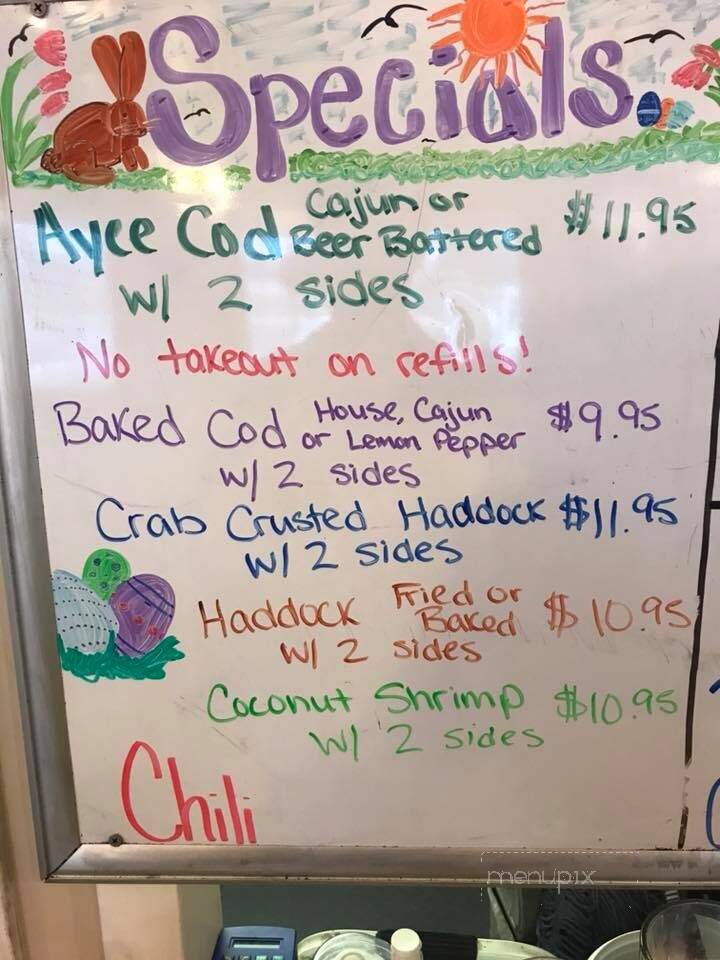 Specials
Ayce Cod Cajun or Beer Battered $11.95
w/ 2 sides
No takeout on refills!
Baked Cod House, Cajun or Lemon Pepper $9.95
w/ 2 sides
Crab Crusted Haddock $11.95
w/ 2 sides
Haddock Fried or Baked $10.95
w/ 2 sides
Coconut Shrimp $10.95
w/ 2 sides
Chili
menupix